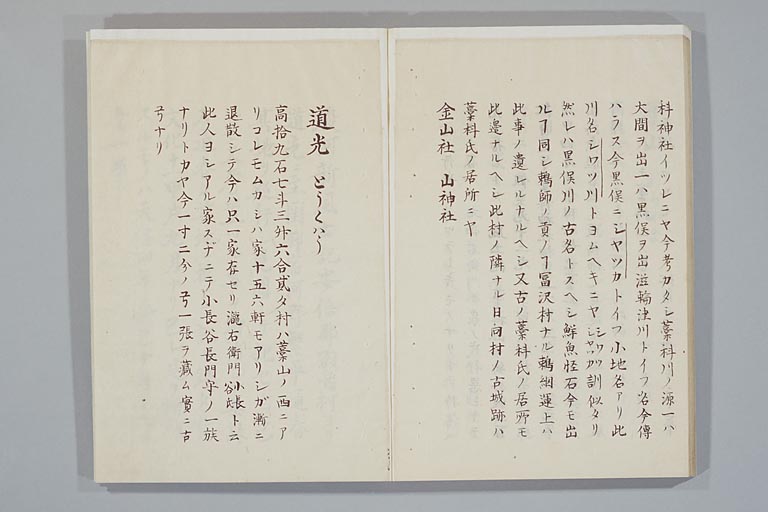 科神社イツレニヤ今考カタシ藁科川ノ源一ハ
大間ヲ出一ハ黒俣ヲ出滋輪津川トイフ名今傳
ハラス今黒俣ニシヤツカトイフ小地名アリ此
川名シワツ川トヨムヘキニヤ 訓似タリ
然レハ黒俣川ノ古名トスヘシ鮮魚怪石今モ出
ルヿ同シ鵜師ノ貢ノヿ冨沢村ナル鵜網運上ハ
此事ノ遺レルナルヘシ又古ノ藁科氏ノ居所モ
此邉ナルヘシ此村ノ隣ナル日向村ノ古城跡ハ
藁科氏ノ居所ニヤ
金山社 山神社
道光 とうくハう
高拾九石七斗三舛六合貮夕村ハ藁山ノ西ニア
リコレモムカシハ家十五六軒モアリシガ漸ニ
退散シテ今ハ只一家存セリ瀧右衛門 ト云
此人ヨシアル家スヂニテ小長谷長門守ノ一族
ナリトカヤ今一寸二分ノ弓一張ヲ藏ム實ニ古
弓ナリ